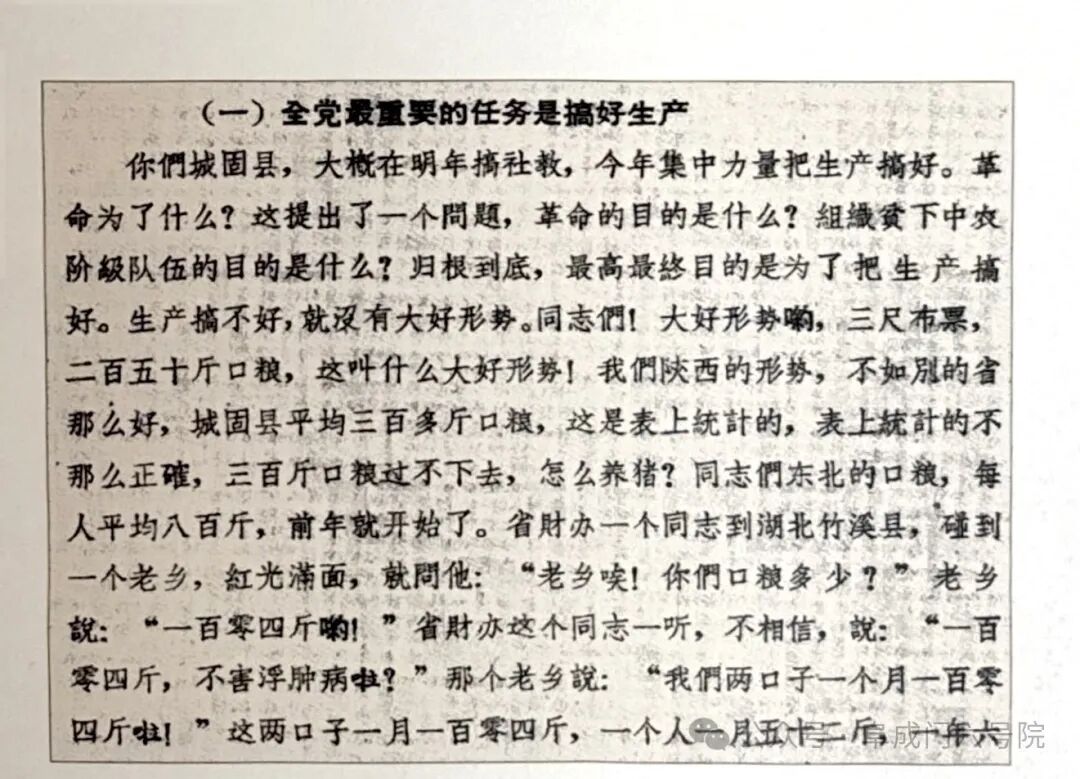 （一）全党最重要的任务是搞好生产
你們城固县，大概在明年搞社教，今年集中力量把生产搞好。革
命为了什么？这提出了一个問題，革命的目的是什么？組織貧下中农
阶級队伍的目的是什么？归根到底，最高最終目的是为了把生产搞
好。生产搞不好，就沒有大好形势。同志們！大好形势喲，三尺布票，
二百五十斤口粮，这叫什么大好形势！我們陝西的形势，不如別的省
那么好，城固县平均三百多斤口粮，这是表上統計的，表上統計的不
那么正確，三百斤口粮过不下去，怎么养猪？同志們东北的口粮，每
人平均八百斤，前年就开始了。省財办一个同志到湖北竹溪县，碰到
一个老乡，紅光滿面，就問他：“老乡唉！你們口粮多少？”老乡
說：“一百零四斤喲！”省財办这个同志一听，不相信，說：“一百
零四斤，不害浮肿病啦？”那个老乡說：“我們两口子一个月一百零
四斤啦！”这两口子一月一百零四斤，一个人一月五十二斤，一年六
号院